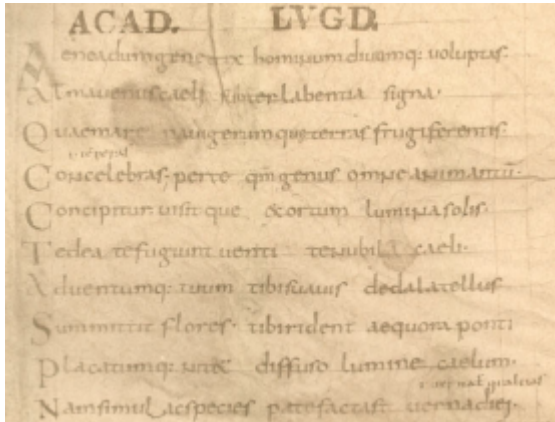 ACAD. LVGD.
Aeneadum genetrix hominum diuumq: uoluptas.
Alma uenus caeli subter labentia signa.
Quae mare nauigerum quae terras frugiferentis.
Concelebras; per te qm genus omne animantu.
Concipitur uisitque exortum lumina solis.
Te dea te fugiunt uenti te nubila caeli.
Aduentumq: tuum tibi suauis dedala tellus
Summittit flores. tibi rident aequora ponti
Placatumq: nitet diffuso lumine caelum.
Nam simul ac species patefactast uerna diei.